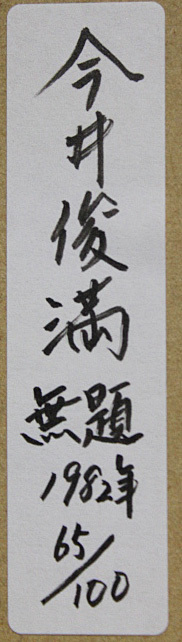 今井俊満
無題
1982年
65/100